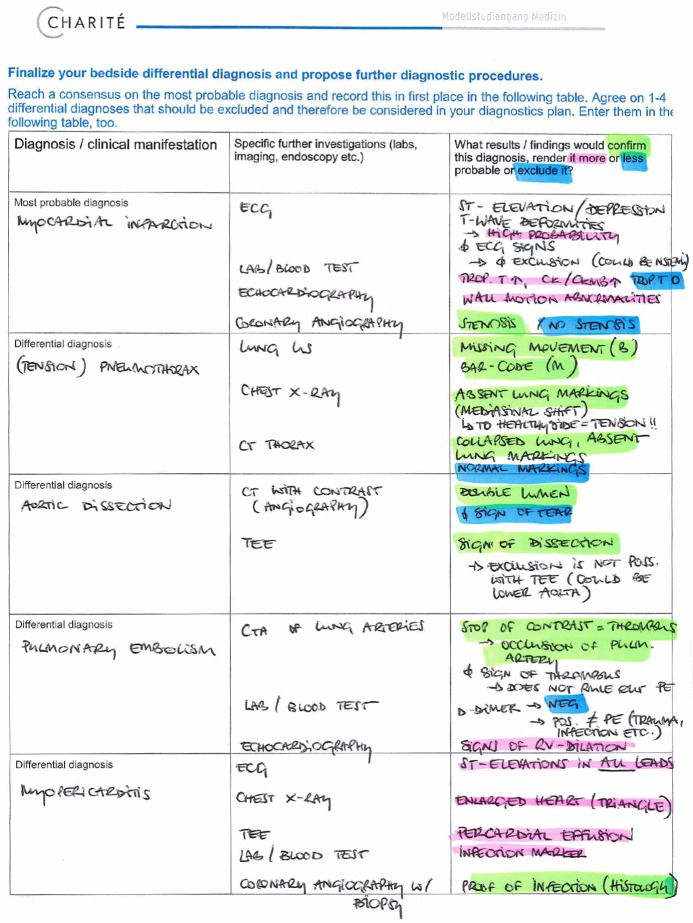 CHARITÉ
Modellstudiengang Medizin
Finalize your bedside differential diagnosis and propose further diagnostic procedures.
Reach a consensus on the most probable diagnosis and record this in first place in the following table. Agree on 1-4
differential diagnoses that should be excluded and therefore be considered in your diagnostics plan. Enter them in the
following table, too.
Diagnosis / clinical manifestation
Specific further investigations (labs,
imaging, endoscopy etc.)
What results / findings would confirm
this diagnosis, render it more or less
probable or exclude it?
Most probable diagnosis
MYOCARDIAL INFARCTION
ECG
ST- ELEVATION / DEPRESSION
T-WAVE DEFORMITIES
→ HIGH PROBABILITY
∅ ECG SIGNS
→ ∅ EXCLUSION (COULD BE NSTEMI)
LAB / BLOOD TEST
TROP. T↑, CK / CKMB↑ TROP. T ∅
ECHOCARDIOGRAPHY
WALL MOTION ABNORMALITIES
CORONARY ANGIOGRAPHY
STENOSIS / NO STENSIS
Differential diagnosis
(TENSION) PNEUMOTHORAX
LUNG US
MISSING MOVEMENT (B)
BAR-CODE (M)
CHEST X-RAY
ABSENT LUNG MARKINGS
(MEDIASINAL SHIFT)
↳ TO HEALTHY SIDE = TENSION !!
CT THORAX
COLLAPSED LUNG, ABSENT
LUNG MARKINGS
NORMAL MARKINGS
Differential diagnosis
AORTIC DISSECTION
CT WITH CONTRAST
(ANGIOGRAPHY)
DOUBLE LUMEN
∅ SIGN OF TEAR
TEE
SIGN OF DISSECTION
→ EXCLUSION IS NOT POSS.
WITH TEE (COULD BE
LOWER AORTA)
Differential diagnosis
PULMONARY EMBOLISM
CTA OF LUNG ARTERIES
STOP OF CONTRAST = THROMBUS
→ OCCLUSION OF PULM.
ARTERY
∅ SIGN OF THROMBUS
→ DOES NOT RULE OUT PE
LAB / BLOOD TEST
D-DIMER → NEG.
→ POS. ≠ PE (TRAUMA,
INFECTION ETC.)
ECHOCARDIOGRAPHY
SIGNS OF RV-DILATION
Differential diagnosis
MYOPERICARDITIS
ECG
ST-ELEVATIONS IN ALL LEADS
CHEST X-RAY
ENLARGED HEART (TRIANGLE)
TEE
PERCARDIAL EFFUSION
LAB / BLOOD TEST
INFECTION MARKER
CORONARY ANGIOGRAPHY W/
BIOPSY
PROOF OF INFECTION (HISTOLOGY)